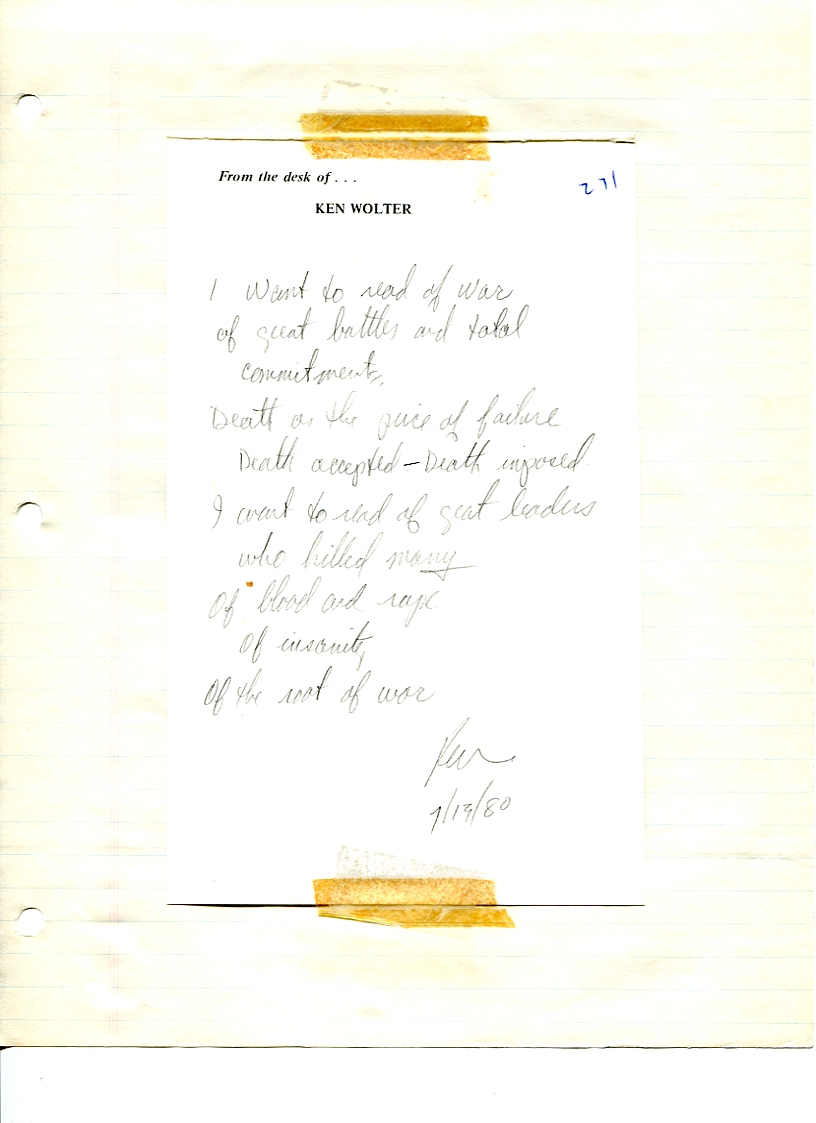 From the desk of . . .
271
KEN WOLTER
I want to read of war
of great battles and total
commitments,
Death as the price of failure
Death accepted – Death imposed.
I want to read of great leaders
who killed many
Of blood and rage
Of insanity
Of the root of war
Ken
7/19/80